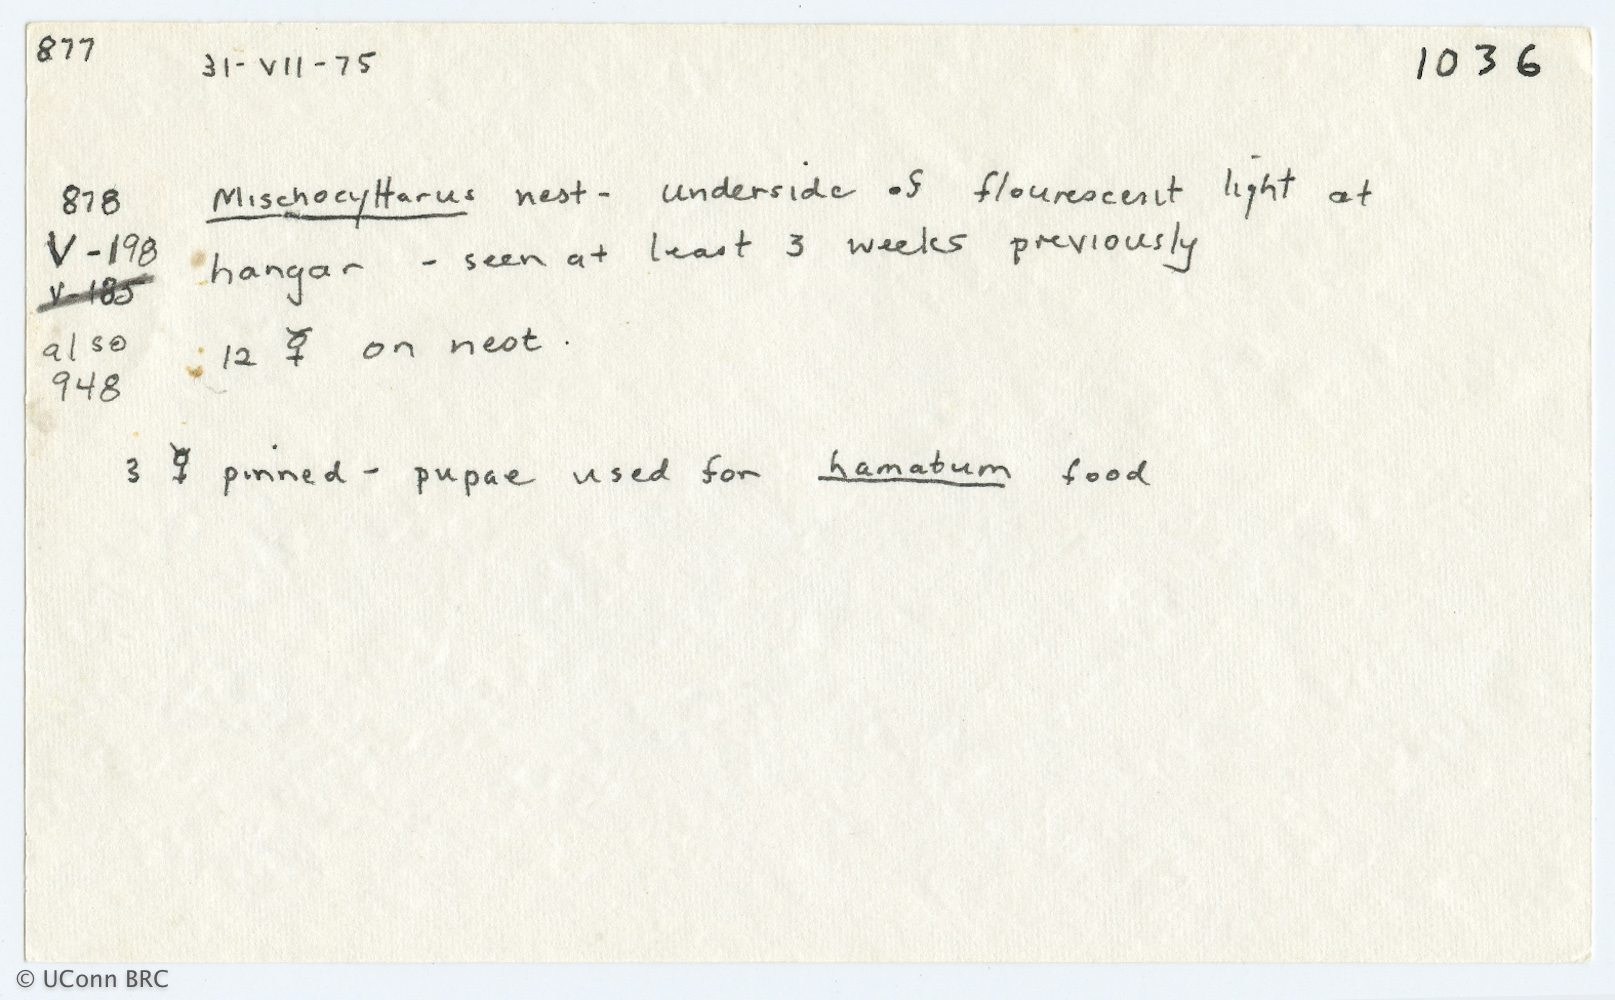 877
31-VII-75
1036
878
Mischocyttarus nest - underside of flourescent light at
V-198
hangar - seen at least 3 weeks previously
V-185
also
12 ☿ on nest.
948
3 ☿ pinned - pupae used for hamatum food
© UConn BRC